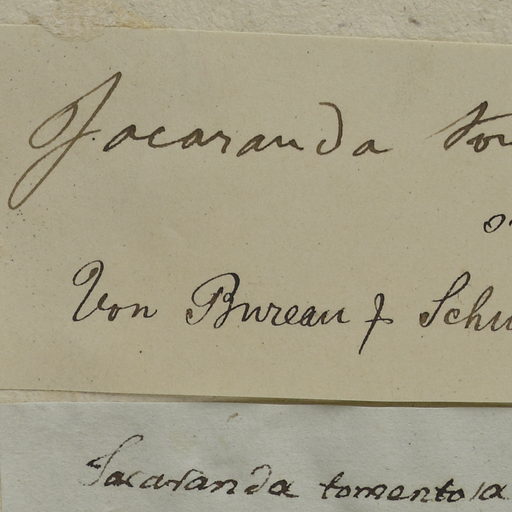 Jacaranda tom
Von Bureau f. Schu
Jacaranda tomentosa